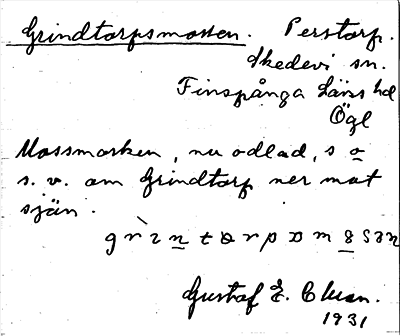 Grindtorpsmossen. Perstorp.
Skedevi sn.
Finspånga läns hd
Ögl
Mossmarken, nu odlad, s o
s. v. om Grindtorp ner mot
sjön.
Gustaf E.
1931